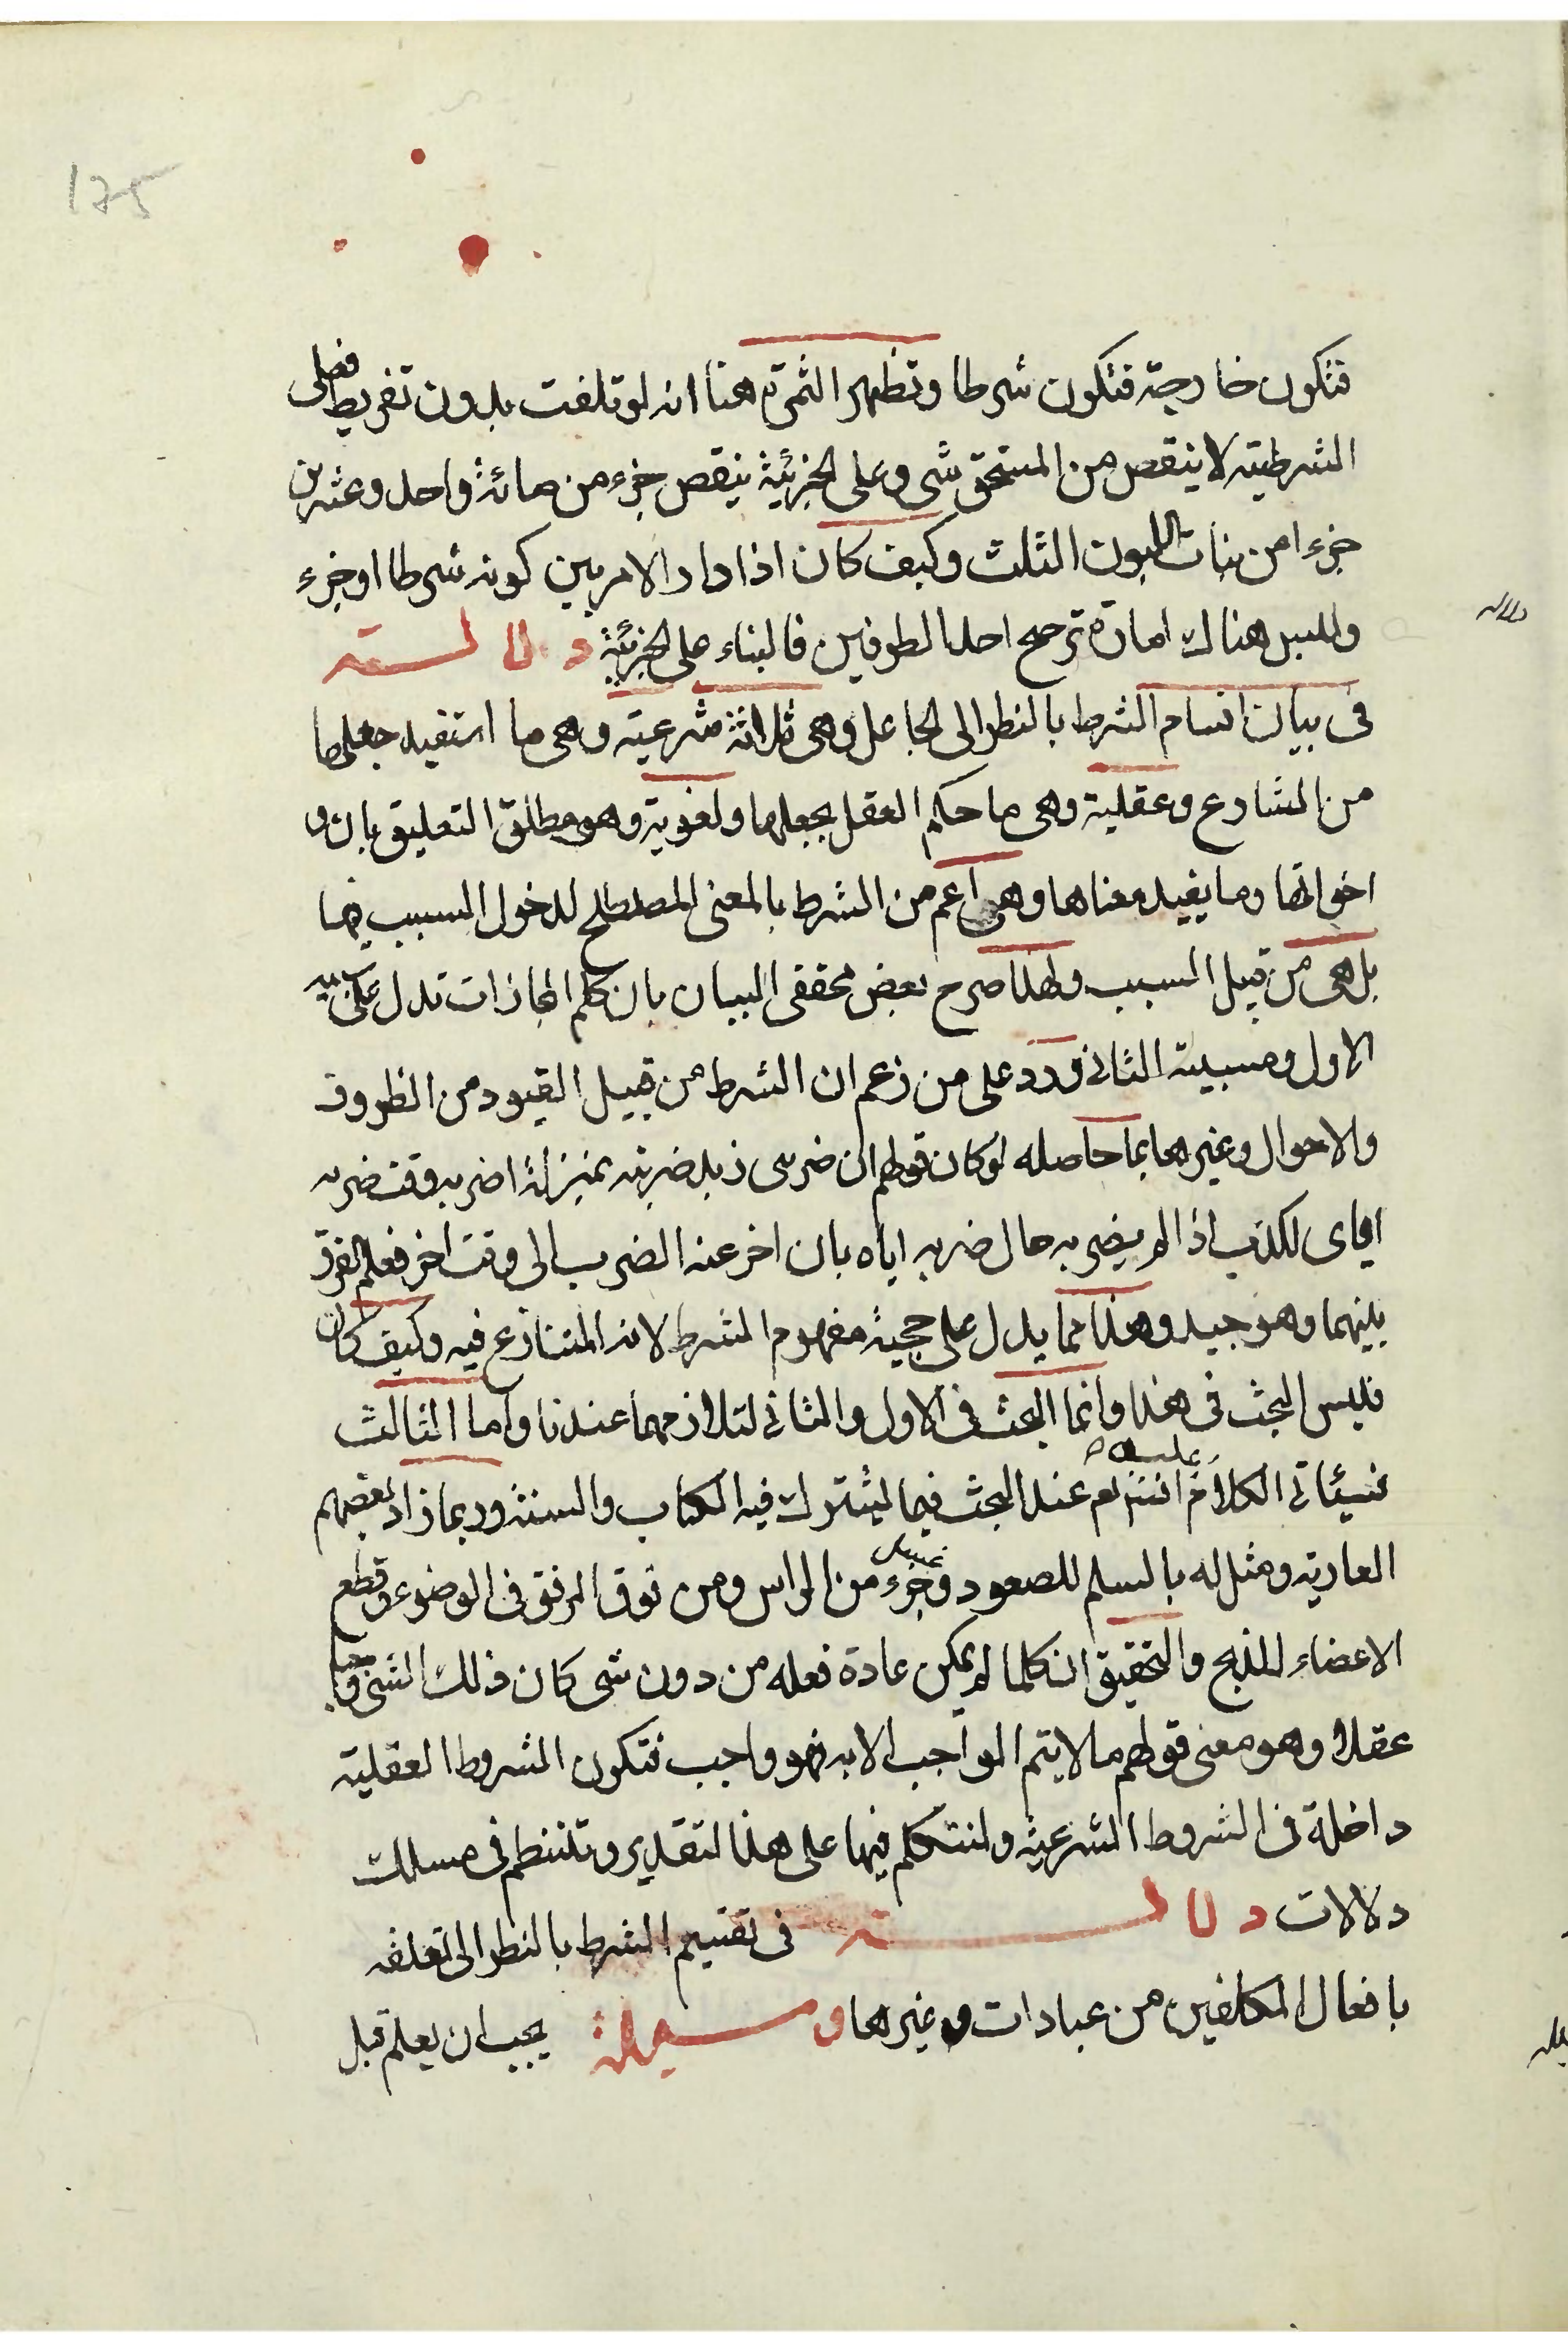 175
فتكون خارجة فتكون شرطا وتظهر الثمرة هنا انه لو تلفت بدون تفريط فعلى
الشرطية لا ينقص من المستحق شي وعلى الجزئية ينقص جزء من مائة واحد وعشرين
جزءا من بنات اللبون الثلث وكيف كان اذا دار الامر بين كونه شرطا او جزء
وليس هناك امارة ترجح احد الطرفين فالبناء على الجزئية دلالة
دلاله
فى بيان اقسام الشرط بالنظر الى الجاعل وهى ثلاثة شرعية وهى ما استفيد جعلها
من الشارع وعقلية وهى ما حكم العقل بجعلها ولغوية وهو مطلق التعليق بان و
اخواتها وما يفيد معناها وهى اعم من الشرط بالمعنى المصطلح لدخول السبب فيها
بل هى من قبيل السبب ولهذا صرح بعض محققى البيان بان كلم المجازات تدل على سببية
الاول ومسببية الثانى ورد على من زعم ان الشرط من قبيل القيود من الظروف
والاحوال وغيرها بما حاصله لو كان قولهم ان ضربنى زيد ضربته بمنزلة اضربه وقت ضربه
اياى لكذب اذا لم يضربه حال ضربه اياه بان اخر عنه الضرب الى وقت اخر فعلم الفرق
بينهما وهو جيد وهذا مما يدل على حجية مفهوم الشرط لانه المتنازع فيه وكيف كان
فليس البحث فى هذا وانما البحث فى الاول والثانى لتلازمهما عندنا واما الثالث
فسيئاتى الكلام عليه انشاء الله عند البحث فيما يشترك فيه الكتاب والسنة وربما زاد بعضهم
العادية ومثل له بالسلم للصعود وغسل جزء من الراس ومن فوق المرفق فى الوضوء وقطع
الاعضاء للذبح والتحقيق ان كلما لم يمكن عادة فعله من دون شى كان ذلك الشى واجبا
عقلا وهو معنى قولهم ما لا يتم الواجب الا به فهو واجب فتكون الشروط العقلية
داخلة فى الشروط الشرعية ولنتكلم فيها على هذا لتقدير وتنتظم فى مسلك
دلالات دلالة فى تقسيم الشرط بالنظر الى تعلقه
بافعال المكلفين من عبادات وغيرها وسيلة يجب ان يعلم قبل